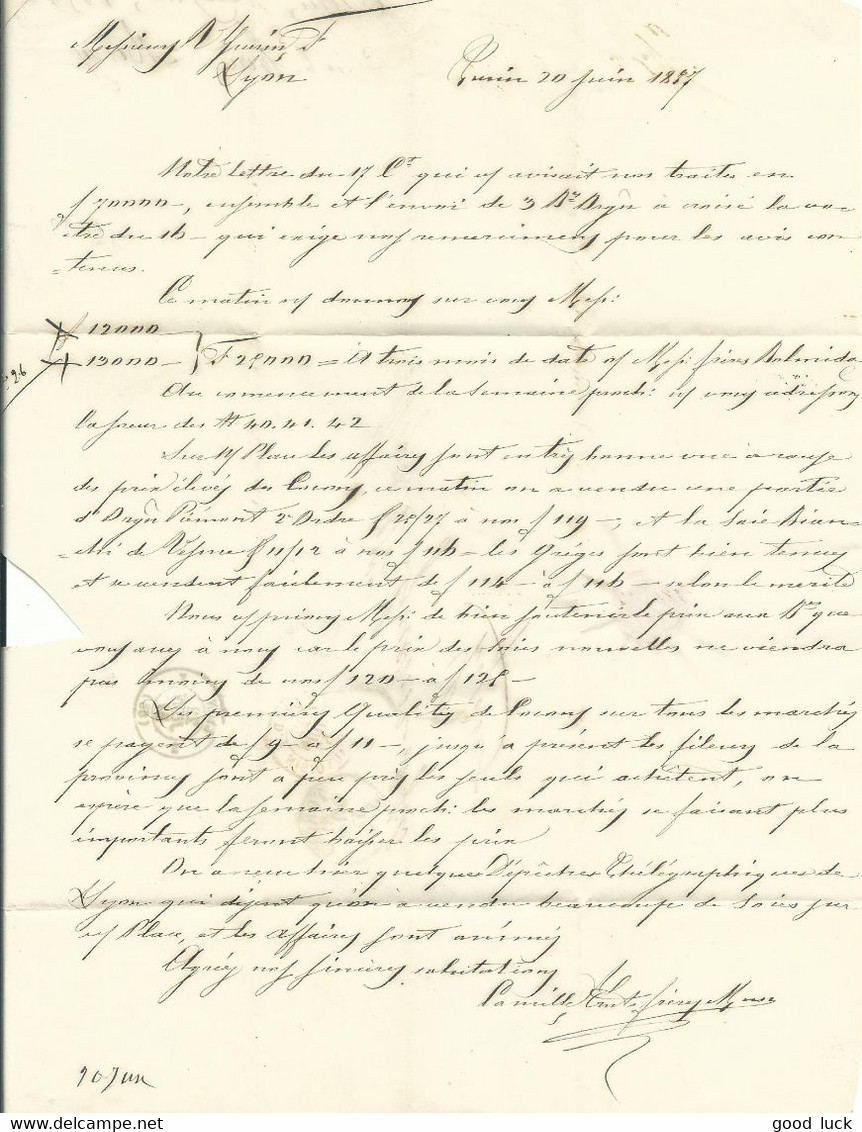 Messieurs Vve Guérin & F
Lyon
Turin 20 Juin 1857
Notre lettre du 17 Ct qui vs avisait nos traites en
f 70000 -, ensemble et l'envoi de 3 Bes Orgn à croisé la vo-
=tre du 16 - qui exige nos remerciments pour les avis con-
=tenus.
Ce matin ns donnons sur vous Mess:
f 12000
13000 - } F 25000 = à trois mois de date o/ Mess: frères
26
Au commencement de la semaine proch: ns vous adressons
la facture des Nos 40. 41. 42
Sur N/ Place les affaires sont en très bonne vue à cause
des prix élevés des Cocons, ce matin on a vendu une partie
d'Orgn Piémont 2e Ordre 25/27 à nos f 119 -, et la Soie Bian-
de 11/12 à nos f 116 - les Grèges sont bien tenues
et se vendent facilement de f 114 - à f 116 - selon le mérite
Nous vs prions Mess: de bien soutenir le prix aux Bes que
vous avez à nous car le prix des Soies nouvelles ne viendra
pas moins de nos f 120 - à f 125 -
Les premières Qualités de Cocons sur tous les marchés
se payent de f 9 - à f 11 -, jusqu'à présent les fileurs de la
province sont à peu près les seuls qui achètent, on
espère que la semaine proch: les marchés se faisant plus
importants feront baisser les prix
On a reçu hier quelques Dépêches Thélégraphiques de
Lyon qui disent qu'on a vendu beaucoup de Soies sur
v/ Place, et les affaires sont animés
Agréez nos sincères salutations
Camille frères
20 Juin
good luck